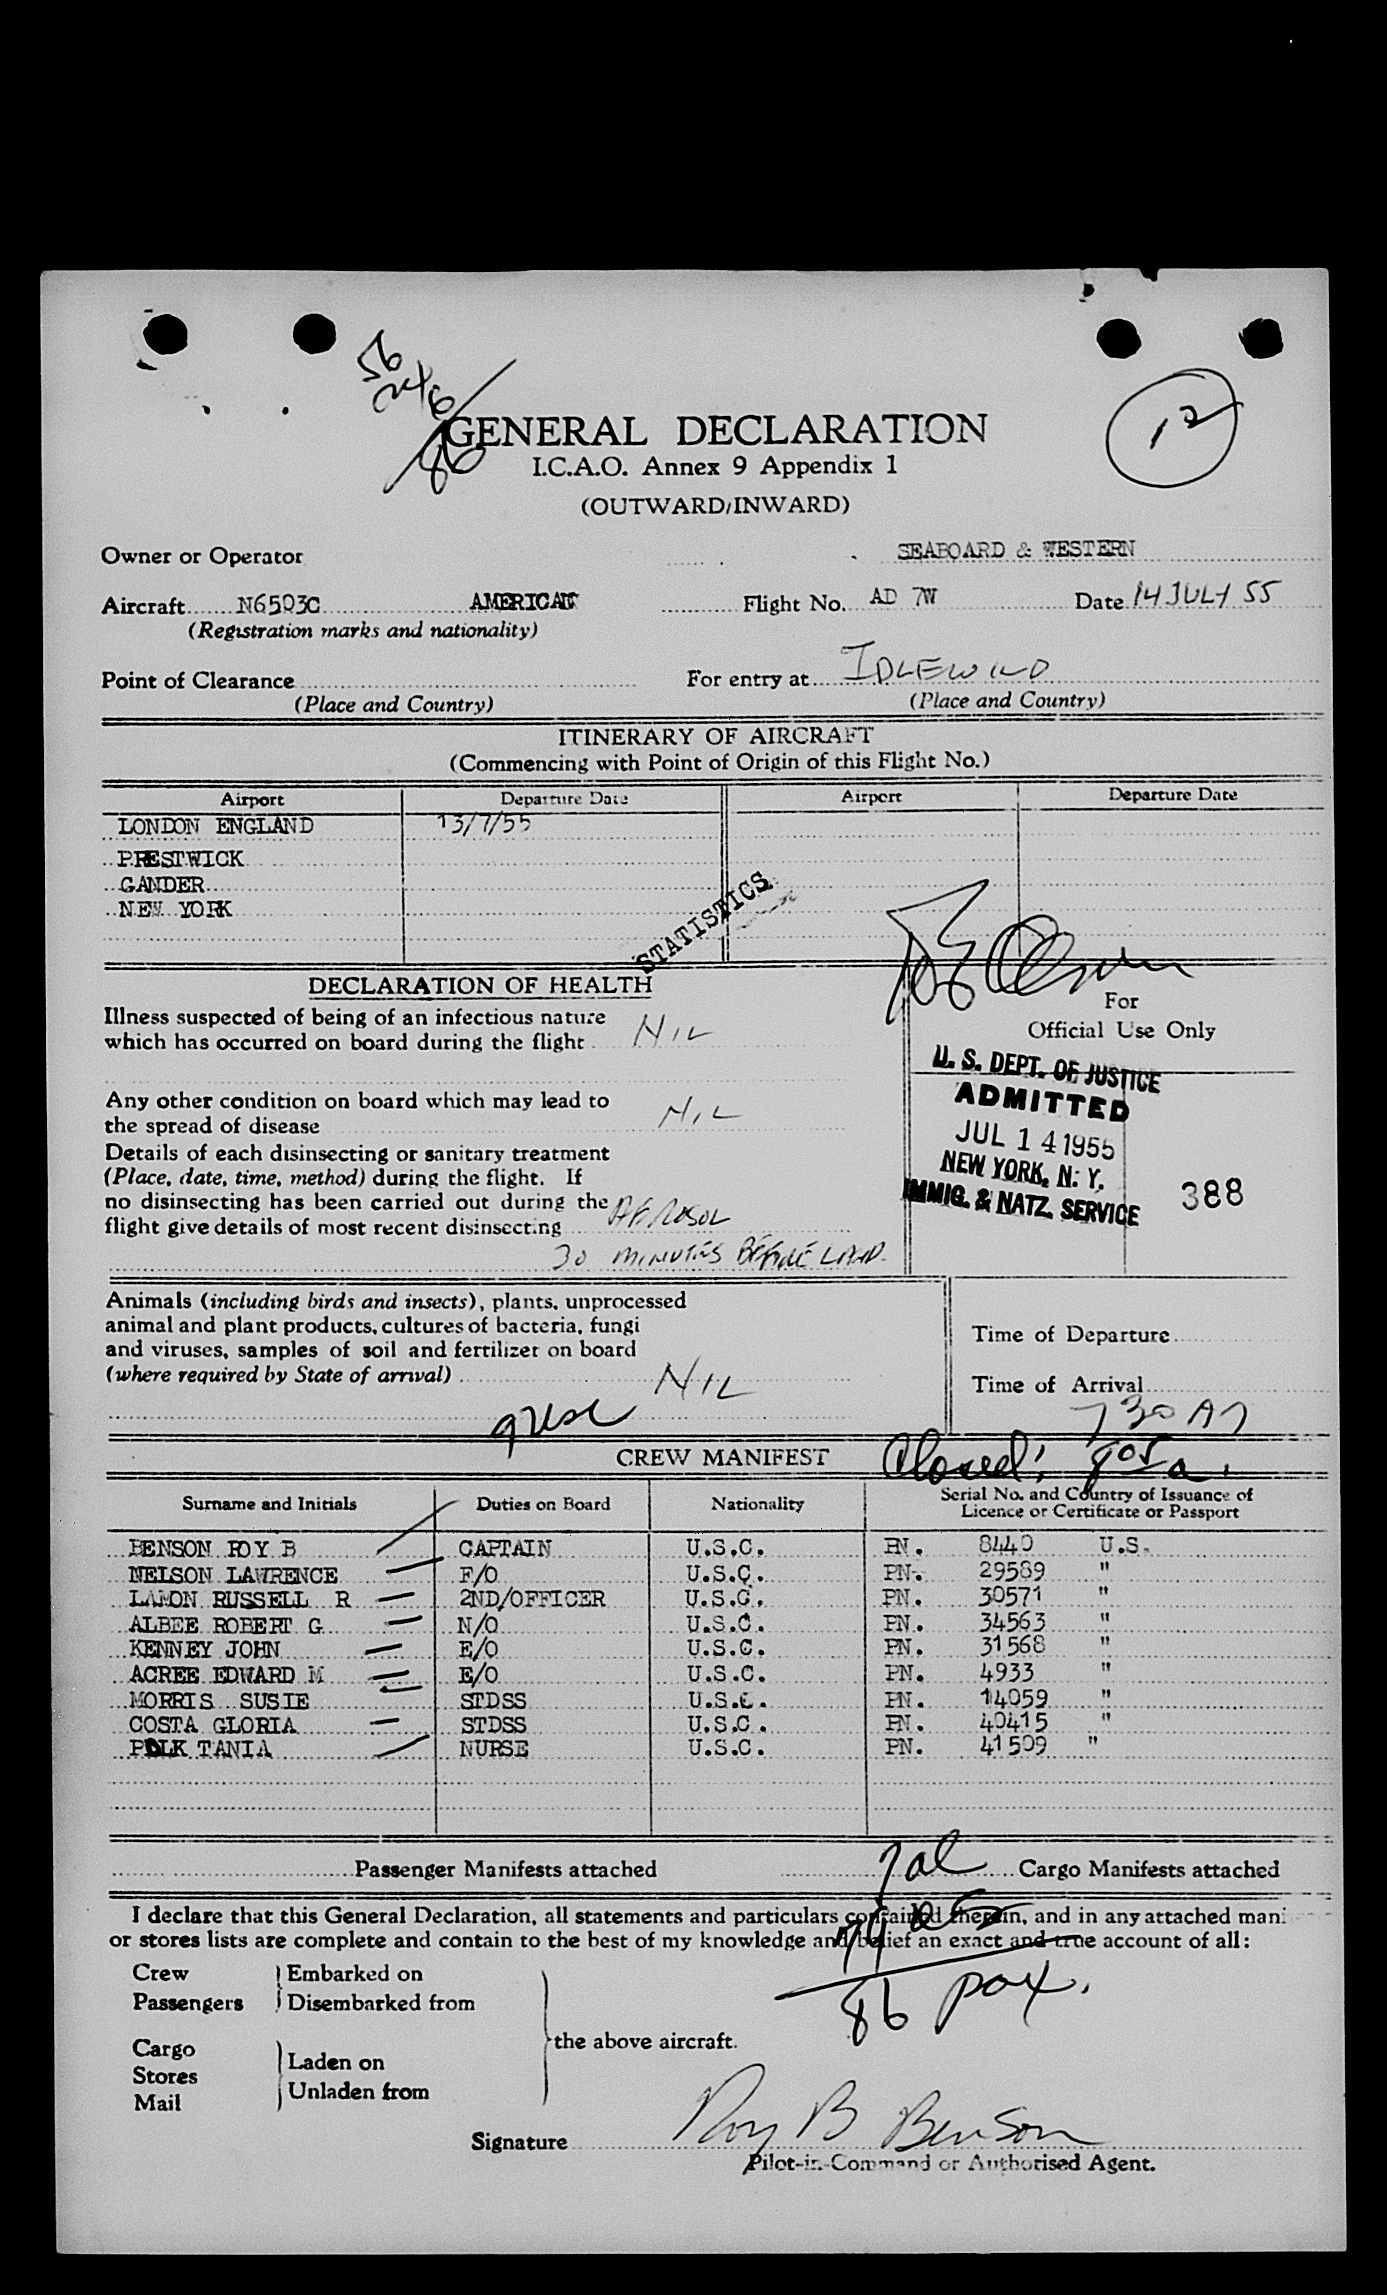 56
24
6
86
GENERAL DECLARATION
12
I.C.A.O. Annex 9 Appendix 1
(OUTWARD/INWARD)
Owner or Operator SEABOARD & WESTERN
Aircraft N6503C AMERICAN Flight No. AD 7W Date 14 JULY 55
(Registration marks and nationality)
Point of Clearance For entry at IDLEWILD
(Place and Country) (Place and Country)
ITINERARY OF AIRCRAFT
(Commencing with Point of Origin of this Flight No.)
Airport Departure Date Airport Departure Date
LONDON ENGLAND 13/7/55
PRESTWICK
GANDER
NEW YORK
STATISTICS
DECLARATION OF HEALTH
For
Official Use Only
Illness suspected of being of an infectious nature
which has occurred on board during the flight NIL
Any other condition on board which may lead to
the spread of disease NIL
Details of each disinsecting or sanitary treatment
(Place, date, time, method) during the flight. If
no disinsecting has been carried out during the
flight give details of most recent disinsecting AEROSOL
30 MINUTES BEFORE LAND.
U. S. DEPT. OF JUSTICE
ADMITTED
JUL 14 1955
NEW YORK, N. Y.
IMMIG. & NATZ. SERVICE
388
Animals (including birds and insects), plants, unprocessed
animal and plant products, cultures of bacteria, fungi
and viruses, samples of soil and fertilizer on board
(where required by State of arrival) NIL
Time of Departure
Time of Arrival
730 A
CREW MANIFEST
Closed: 805 a.
Surname and Initials Duties on Board Nationality Serial No. and Country of Issuance of
Licence or Certificate or Passport
BENSON ROY B CAPTAIN U.S.C. PN. 8440 U.S.
NELSON LAWRENCE F/O U.S.C. PN. 29589 "
LAMON RUSSELL R 2ND/OFFICER U.S.C. PN. 30571 "
ALBEE ROBERT G N/O U.S.C. PN. 34563 "
KENNEY JOHN E/O U.S.C. PN. 31568 "
ACREE EDWARD M E/O U.S.C. PN. 4933 "
MORRIS SUSIE STDSS U.S.C. PN. 14059 "
COSTA GLORIA STDSS U.S.C. PN. 40415 "
POLK TANIA NURSE U.S.C. PN. 41509 "
Passenger Manifests attached Cargo Manifests attached
I declare that this General Declaration, all statements and particulars contained therein, and in any attached mani
or stores lists are complete and contain to the best of my knowledge and belief an exact and true account of all:
86 pax.
Crew
Passengers
Embarked on
Disembarked from
Cargo
Stores
Mail
Laden on
Unladen from
the above aircraft.
Signature Roy B Benson
Pilot-in-Command or Authorised Agent.